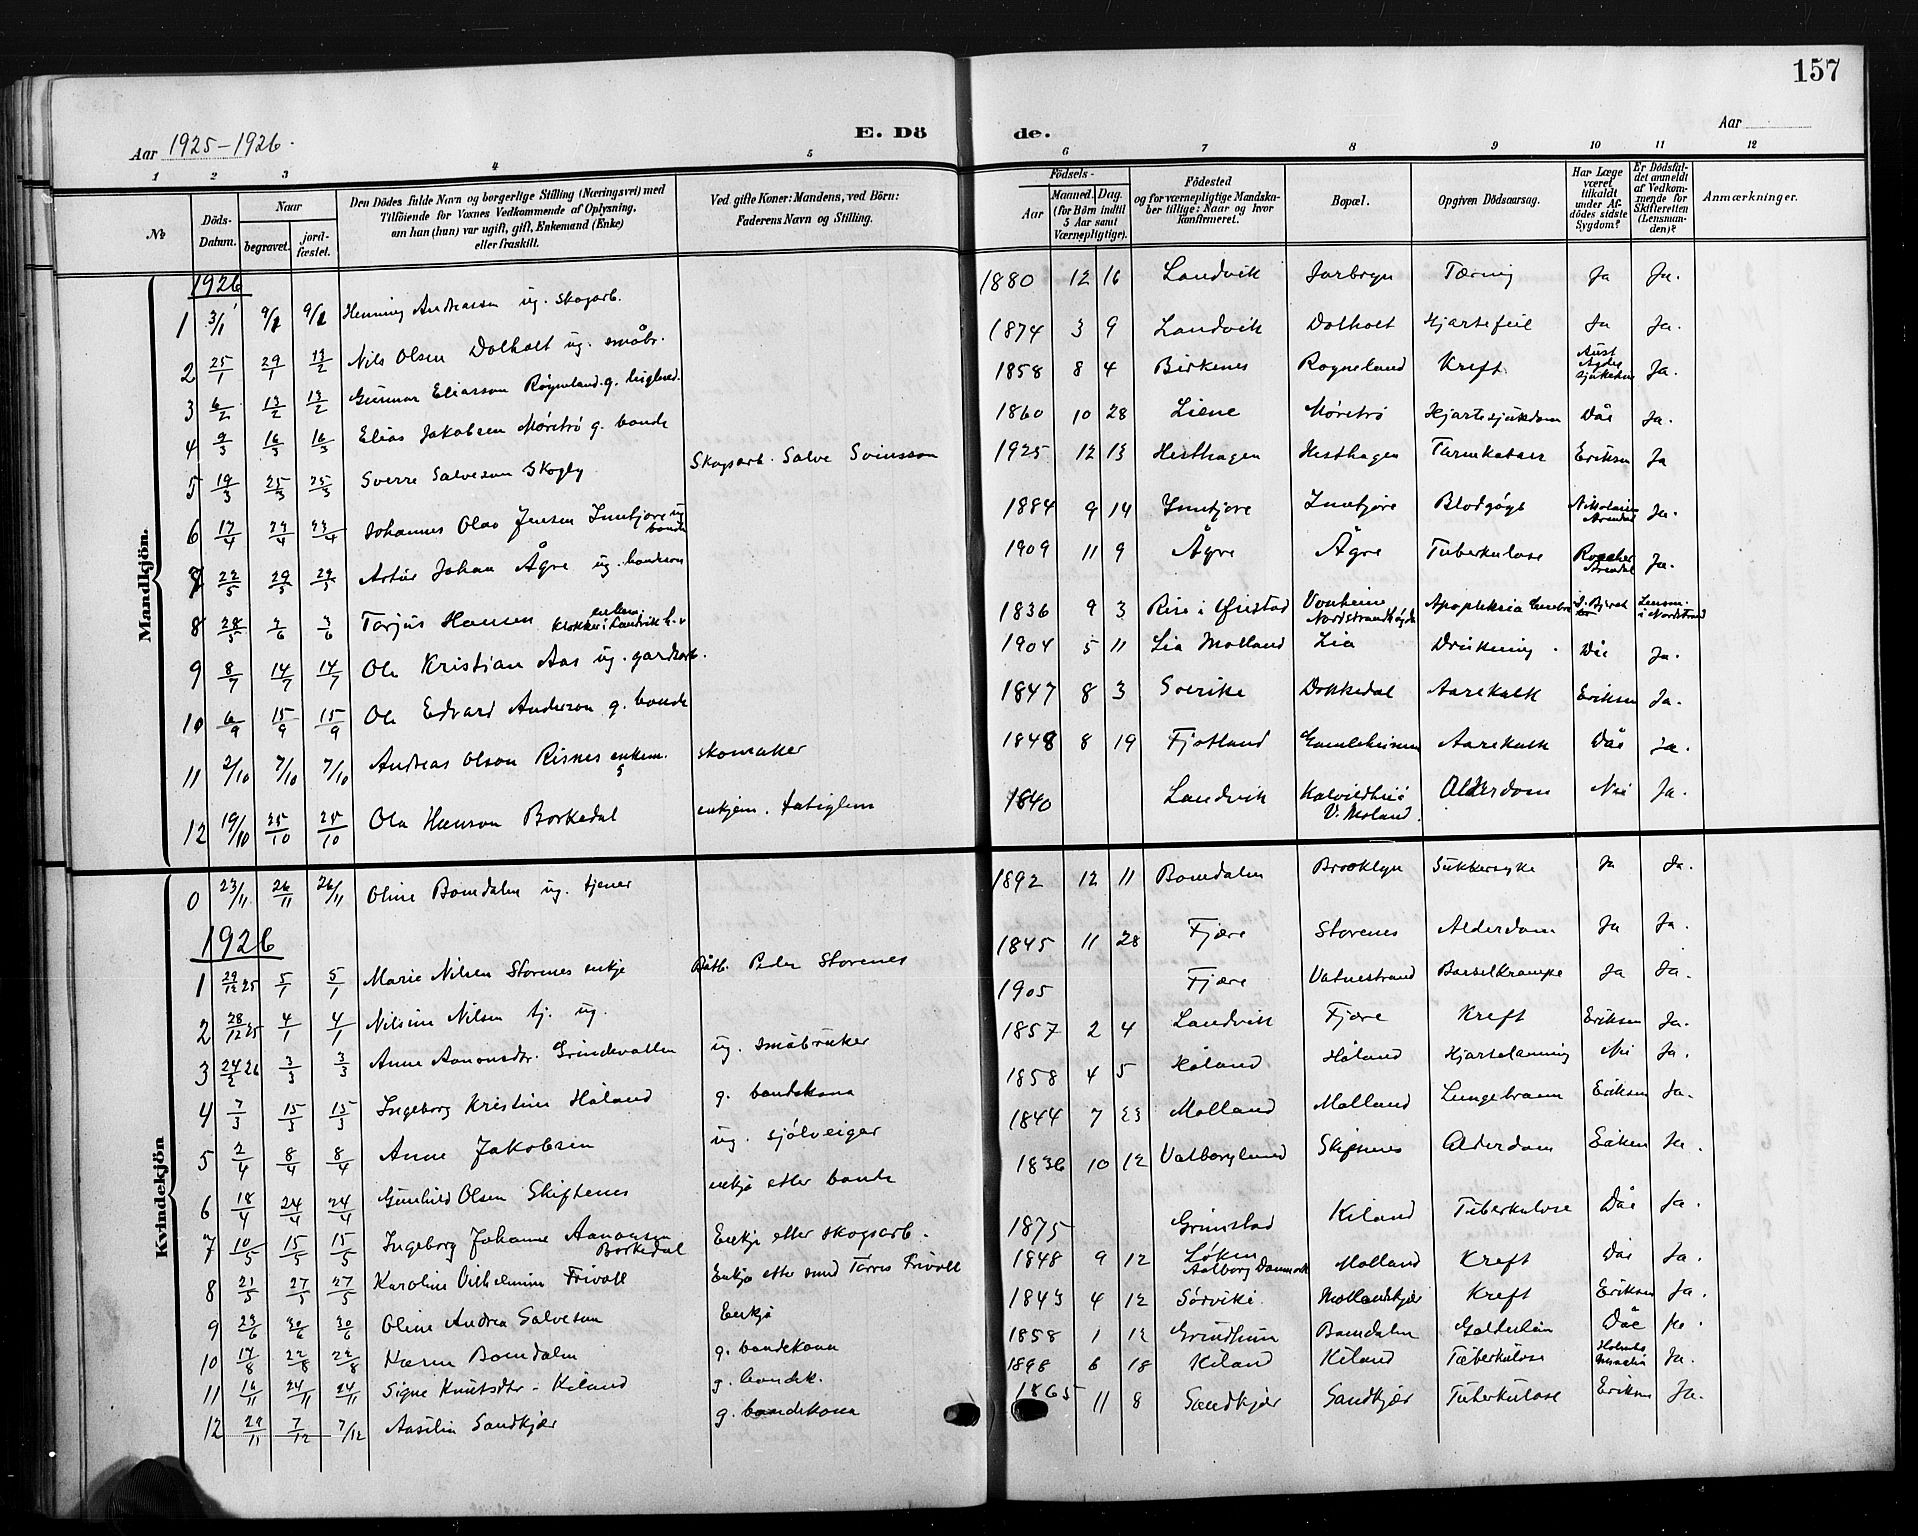 157
Aar 1925-1926.
E. Dö de.
Aar
1 2 3 4 5 6 7 8 9 10 11 12
№
Döds-Datum.
Naar
begravet.
jord-fæstet.
Den Dödes fulde Navn og borgerlige Stilling (Næringsvei) med
Tilföiende for Voxnes Vedkommende af Oplysning,
om han (hun) var ugift, gift, Enkemand (Enke)
eller fraskilt.
Ved gifte Koner: Mandens, ved Börn:
Faderens Navn og Stilling.
Födsels-
Aar
Maaned. Dag.
(for Börn indtil
5 Aar samt
Værnepligtige).
Födested
og for værnepligtige Mandska-
ber tillige: Naar og hvor
konfirmeret.
Bopæl.
Opgiven Dödsaarsag.
Har Læge
været
tilkaldt
under Af-
dödes sidste
Sygdom?
Er Dödsfal-
det anmeldt
af Vedkom-
mende for
Skifteretten
(Lensman-
den)?
Anmærkninger.
Mandkjön.
1926
1 3/1 9/1 9/1 Henning Andreassen ug. skogarb. 1880 12 16 Landvik Tæring Ja Ja.
2 25/1 29/1 13/2 Nils Olsen Dolholt ug. småbr. 1874 3 9 Landvik Dolholt Hjartefeil Ja Ja.
3 6/2 13/2 13/2 Gunnar Eliassen Røyneland g. 1858 8 4 Birkenes Rogneland Kreft Aust Agder sjukehus Ja.
4 9/3 16/3 16/3 Elias Jakobsen Møretrø g. bonde 1860 10 28 Liene Møretrø Hjartesjukdom Dåe Ja.
5 19/3 25/3 25/3 Sverre Salveson Skogly Skogsarb. Salve Svinsson 1925 12 13 Hesthagen Hesthagen Tarmkatarr Eriksen Ja
6 17/4 23/4 23/4 Johannes Olao Jensen Innfjore ug bonde 1884 9 14 Innfjore Innfjore Arendal Ja.
7 22/5 29/5 29/5 Artur Johan Ågre ug. bondeson 1909 11 9 Ågre Ågre Tuberkulose Arendal Ja.
8 28/5 3/6 3/6 Tarjus Hansen enkem. klokker i Landvik 1836 9 3 Rise i Øiestad Nordstrandhögda Apopleksia Lensm. i Nordstrand
9 8/7 14/7 14/7 Ole Kristian Aas ug. gardarb. 1904 5 11 Lia Molland Lia Drukning. Dåe Ja.
10 6/9 15/9 15/9 Ole Edvard Anderson g. bonde 1847 8 3 Sverike Dokkedal Aarekalk Eriksen Ja.
11 2/10 7/10 7/10 Andreas Olson Risnes enkem. skomaker 1848 8 19 Fjotland Aarekalk Dåe Ja.
12 19/10 25/10 25/10 Ola Hanson Borkedal enkjem. fatiglem 1840 Landvik V. Moland. Alderdom Nei Ja.
Kvindekjön
0 23/11 26/11 26/11 Oline Bomdalen ug. tjener 1892 12 11 Bomdalen Brooklyn Sukkersyke Ja Ja.
1926
1 29/12 25 5/1 5/1 Marie Nilsen Storenes enkje Båtb. Peder Storenes 1845 11 28 Fjære Storenes Alderdom Ja Ja.
2 28/12 25 4/1 4/1 Nilsine Nilsen tj. ug. 1905 Fjære Vatnestrand Barselkrampe Ja Ja.
3 24/2 26 3/3 3/3 Anne Aanonsdtr. Grindevatten ug. småbruker 1857 2 4 Landvik Fjære Kreft Eriksen Ja.
4 7/3 15/3 15/3 Ingeborg Kristine Håland g. bondekona 1858 4 5 Håland Håland Hjartelamning Nei Ja.
5 2/4 8/4 8/4 Anne Jakobsen ug. sjølveiger 1844 7 23 Molland Molland Lungebrann Eriksen Ja.
6 18/4 24/4 24/4 Gunhild Olsen Skiftenes enkje etter bonde 1836 10 12 Valborglund Skiftenes Alderdom Eriksen Ja.
7 10/5 15/5 15/5 Ingeborg Johanne Aanonsen Borkedal Enkje etter skogsarb. 1875 Grimstad Kiland Tuberkulose Dåe Ja.
8 21/5 27/5 27/5 Karoline Vilhelmine Frivoll Enkje etter smed Tarres Frivoll 1848 9 12 Løken Aalborg Danmark Molland Kreft Dåe Ja.
9 23/6 30/6 30/6 Oline Andrea Salvesen Enkje 1843 4 12 Sørvike. Mollandskjær Kreft Eriksen Ja.
10 17/8 22/8 22/8 Karen Bomdalen g. bondekona 1858 1 12 Grindheim Bomdalen Dåe Ja.
11 16/11 24/11 24/11 Signe Knutsdtr. Kiland g. bondek. 1898 6 18 Kiland Kiland Tuberkulose Ja.
12 29/11 7/12 7/12 Aasilia Sandkjær g. bondekona 1865 11 8 Sandkjær Sandkjær Tuberkulose Eriksen Ja.